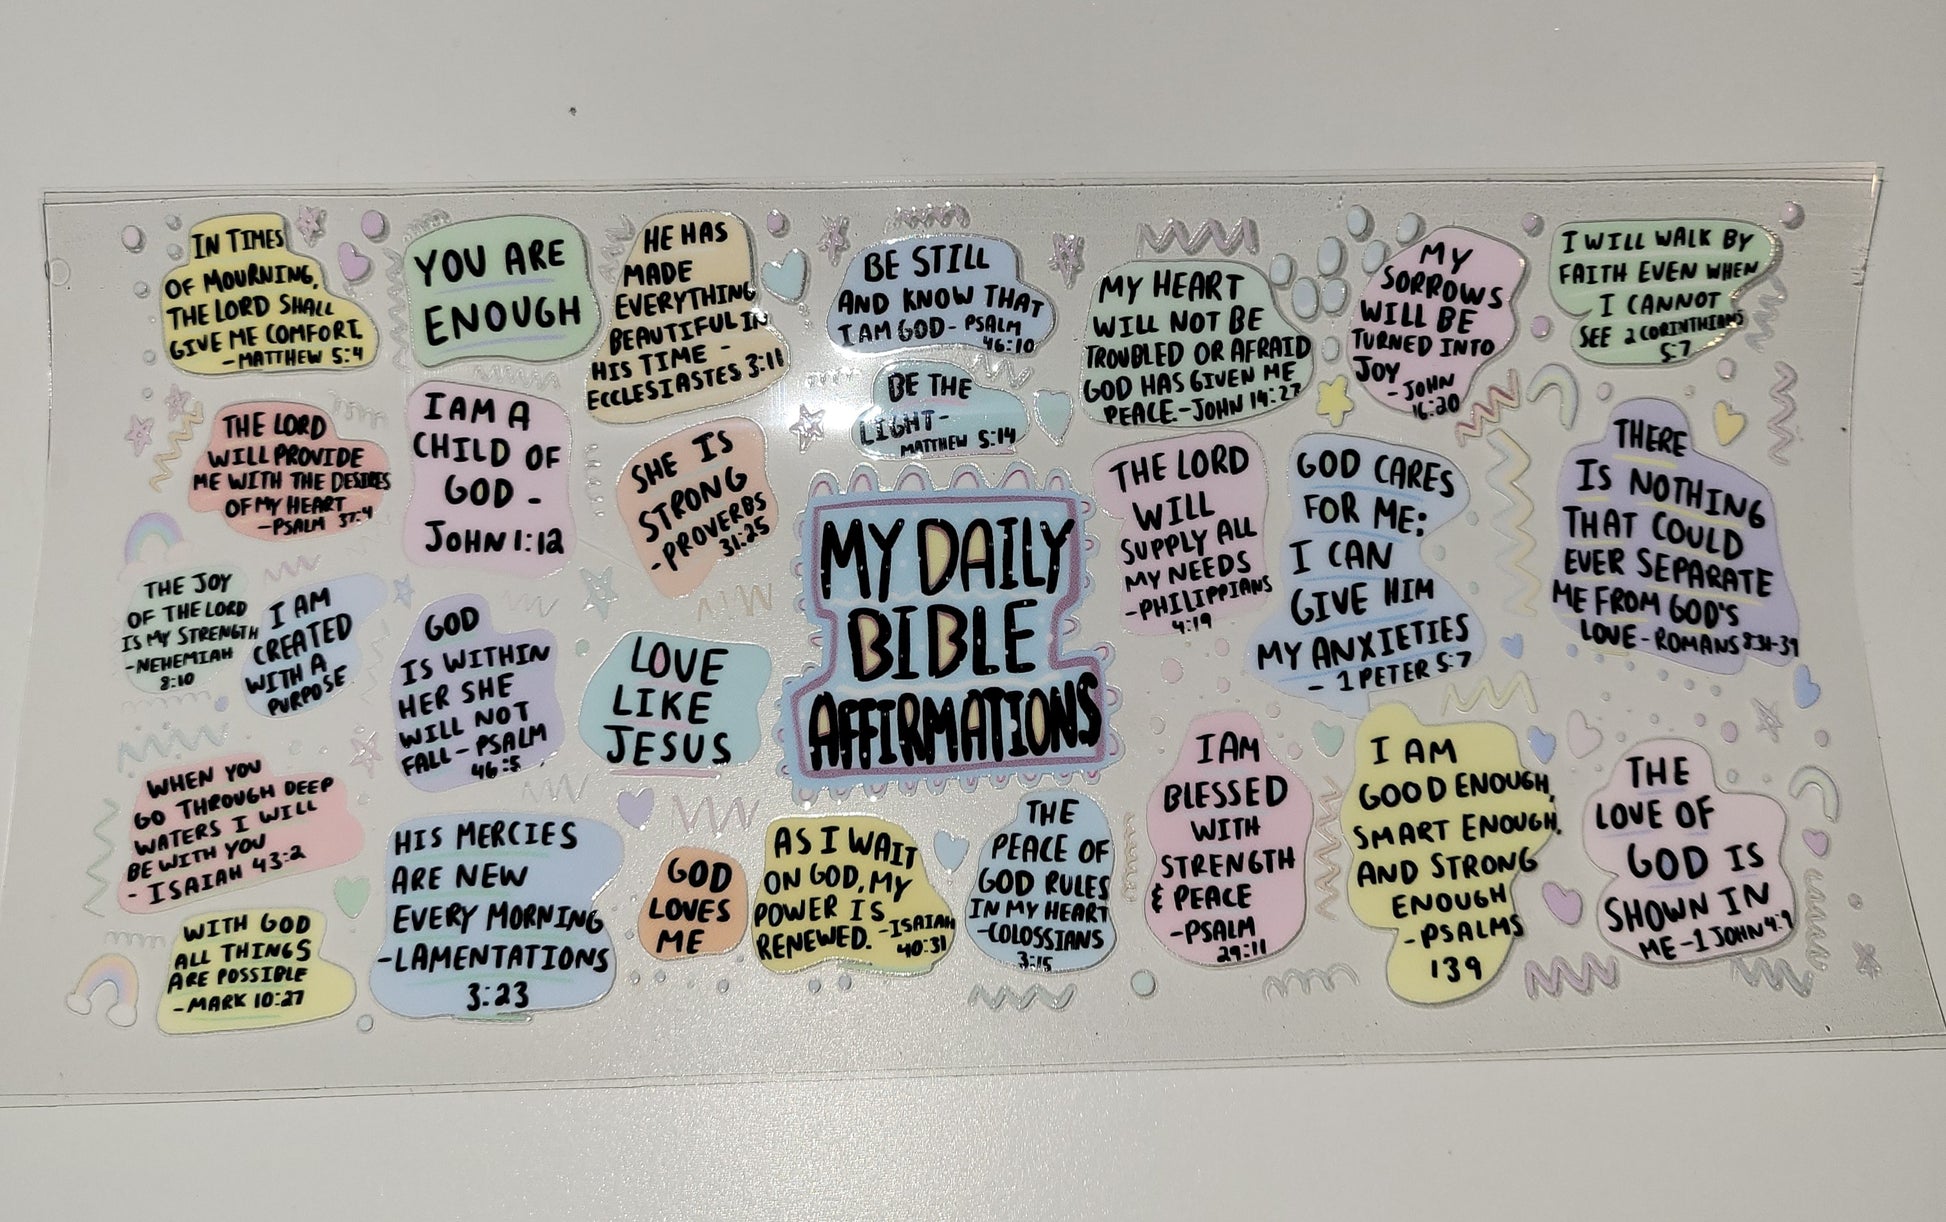 IN TIMES
OF MOURNING,
THE LORD SHALL
GIVE ME COMFORT.
-MATTHEW 5:4
YOU ARE
ENOUGH
HE HAS
MADE
EVERYTHING
BEAUTIFUL IN
HIS TIME -
ECCLESIASTES 3:11
BE STILL
AND KNOW THAT
I AM GOD - PSALM
46:10
MY HEART
WILL NOT BE
TROUBLED OR AFRAID
GOD HAS GIVEN ME
PEACE.-JOHN 14:27
MY
SORROWS
WILL BE
TURNED INTO
JOY
-JOHN
16:20
I WILL WALK BY
FAITH EVEN WHEN
I CANNOT
SEE 2 CORINTHIANS
5:7
THE LORD
WILL PROVIDE
ME WITH THE DESIRES
OF MY HEART
-PSALM 37:4
I AM A
CHILD OF
GOD -
JOHN 1:12
SHE IS
STRONG
-PROVERBS
31:25
BE THE
LIGHT-
MATTHEW 5:14
THE LORD
WILL
SUPPLY ALL
MY NEEDS
-PHILIPPIANS
4:19
GOD CARES
FOR ME:
I CAN
GIVE HIM
MY ANXIETIES
- 1 PETER 5:7
THERE
IS NOTHING
THAT COULD
EVER SEPARATE
ME FROM GOD'S
LOVE-ROMANS 8:31-39
THE JOY
OF THE LORD
IS MY STRENGTH
-NEHEMIAH
8:10
I AM
CREATED
WITH A
PURPOSE
GOD
IS WITHIN
HER SHE
WILL NOT
FALL - PSALM
46:5
LOVE
LIKE
JESUS
MY DAILY
BIBLE
AFFIRMATIONS
WHEN YOU
GO THROUGH DEEP
WATERS I WILL
BE WITH YOU
- ISAIAH 43:2
HIS MERCIES
ARE NEW
EVERY MORNING
-LAMENTATIONS
3:23
GOD
LOVES
ME
AS I WAIT
ON GOD, MY
POWER IS
RENEWED. -ISAIAH
40:31
THE
PEACE OF
GOD RULES
IN MY HEART
-COLOSSIANS
3:15
I AM
BLESSED
WITH
STRENGTH
& PEACE
-PSALM
29:11
I AM
GOOD ENOUGH,
SMART ENOUGH,
AND STRONG
ENOUGH
-PSALMS
139
THE
LOVE OF
GOD IS
SHOWN IN
ME -1 JOHN 4:9
WITH GOD
ALL THINGS
ARE POSSIBLE
-MARK 10:27